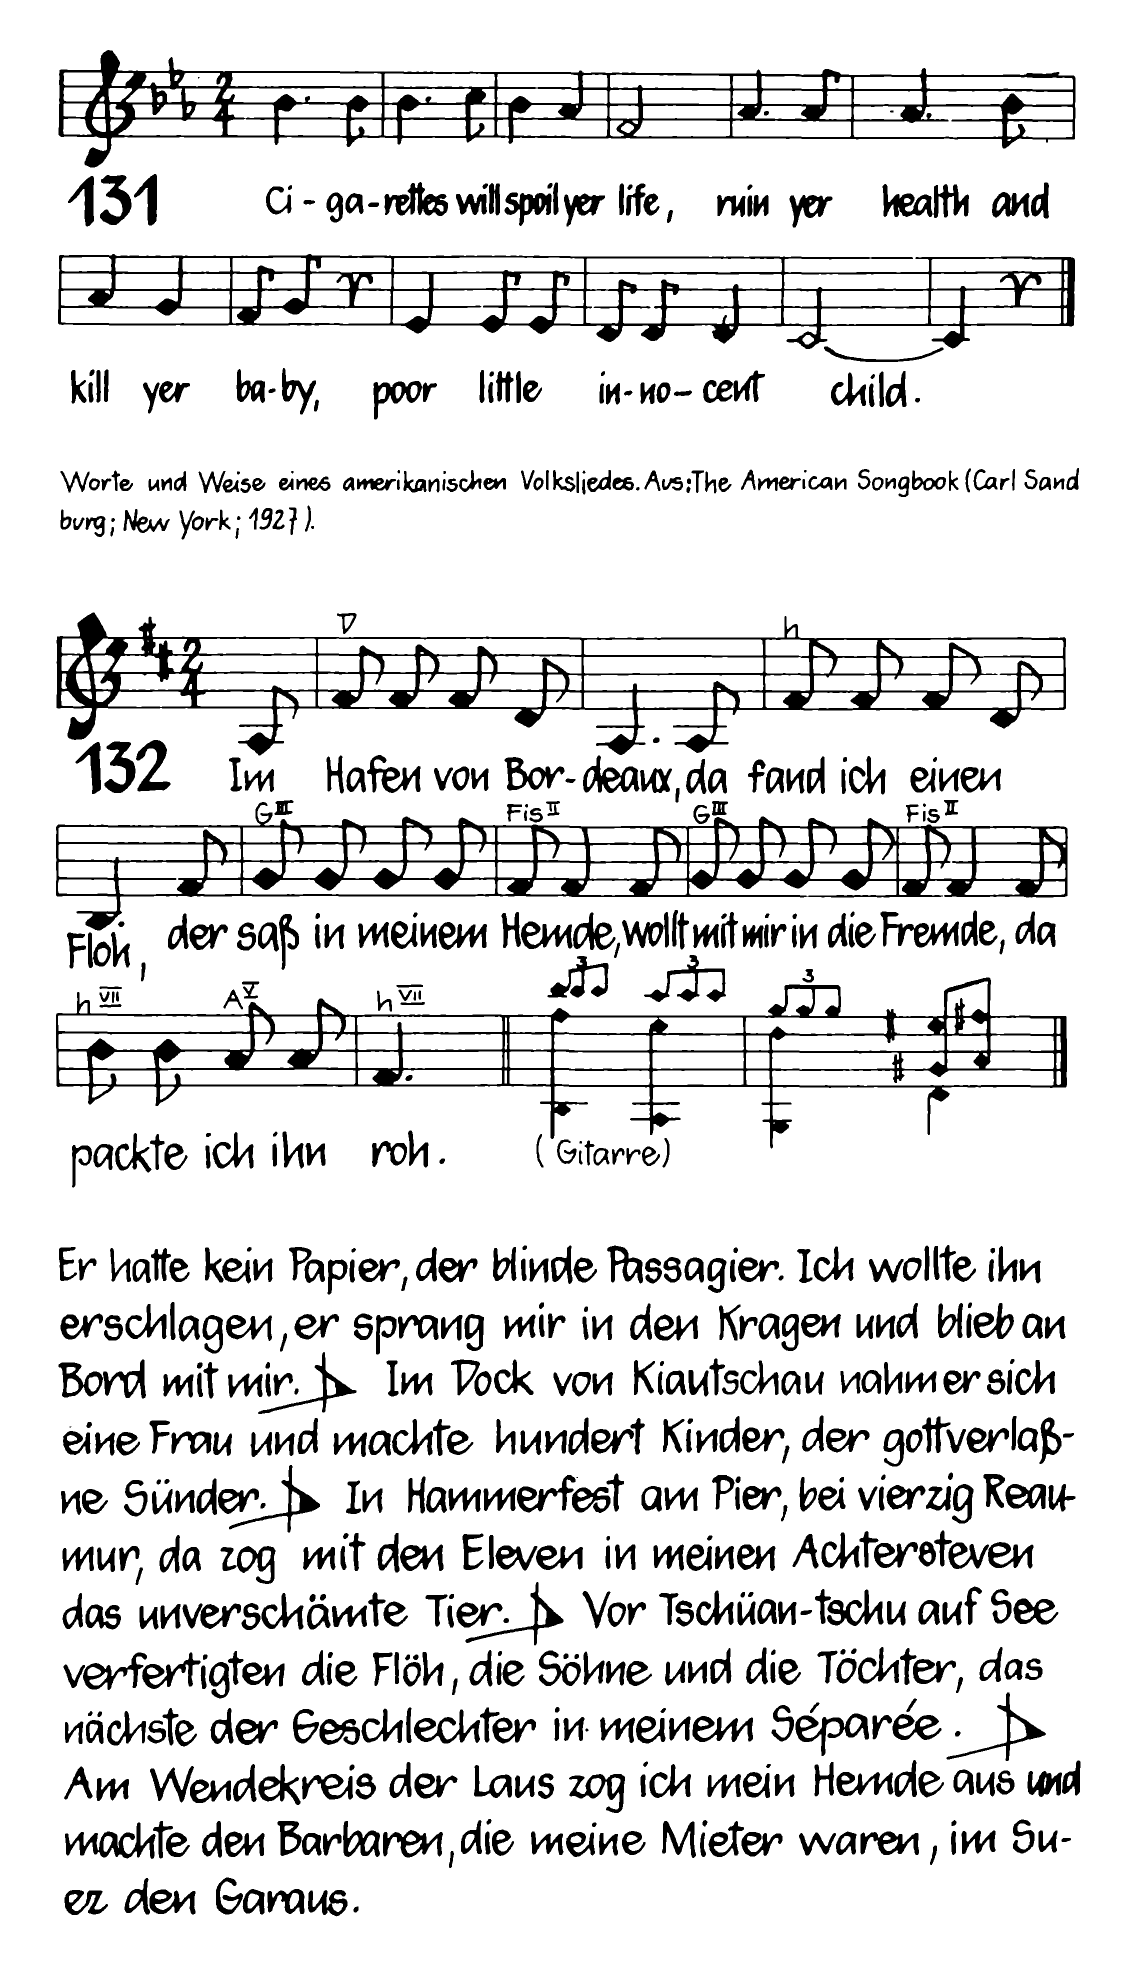 131
Ci - ga - rettes will spoil yer life, ruin yer health and
kill yer ba - by, poor little in - no - cent child.
Worte und Weise eines amerikanischen Volksliedes. Aus: The American Songbook (Carl Sand
burg; New York; 1927).
D h
132
Im Hafen von Bor - deaux, da fand ich einen
G III Fis II G III Fis II
Floh, der saß in meinem Hemde, wollt mit mir in die Fremde, da
h VII A V h VII 3 3 3
packte ich ihn roh. (Gitarre)
Er hatte kein Papier, der blinde Passagier. Ich wollte ihn
erschlagen, er sprang mir in den Kragen und blieb an
Bord mit mir. Im Dock von Kiautschau nahm er sich
eine Frau und machte hundert Kinder, der gottverlaß-
ne Sünder. In Hammerfest am Pier, bei vierzig Reau-
mur, da zog mit den Eleven in meinen Achtersteven
das unverschämte Tier. Vor Tschüan-tschu auf See
verfertigten die Flöh, die Söhne und die Töchter, das
nächste der Geschlechter in meinem Séparée.
Am Wendekreis der Laus zog ich mein Hemde aus und
machte den Barbaren, die meine Mieter waren, im Su-
ez den Garaus.